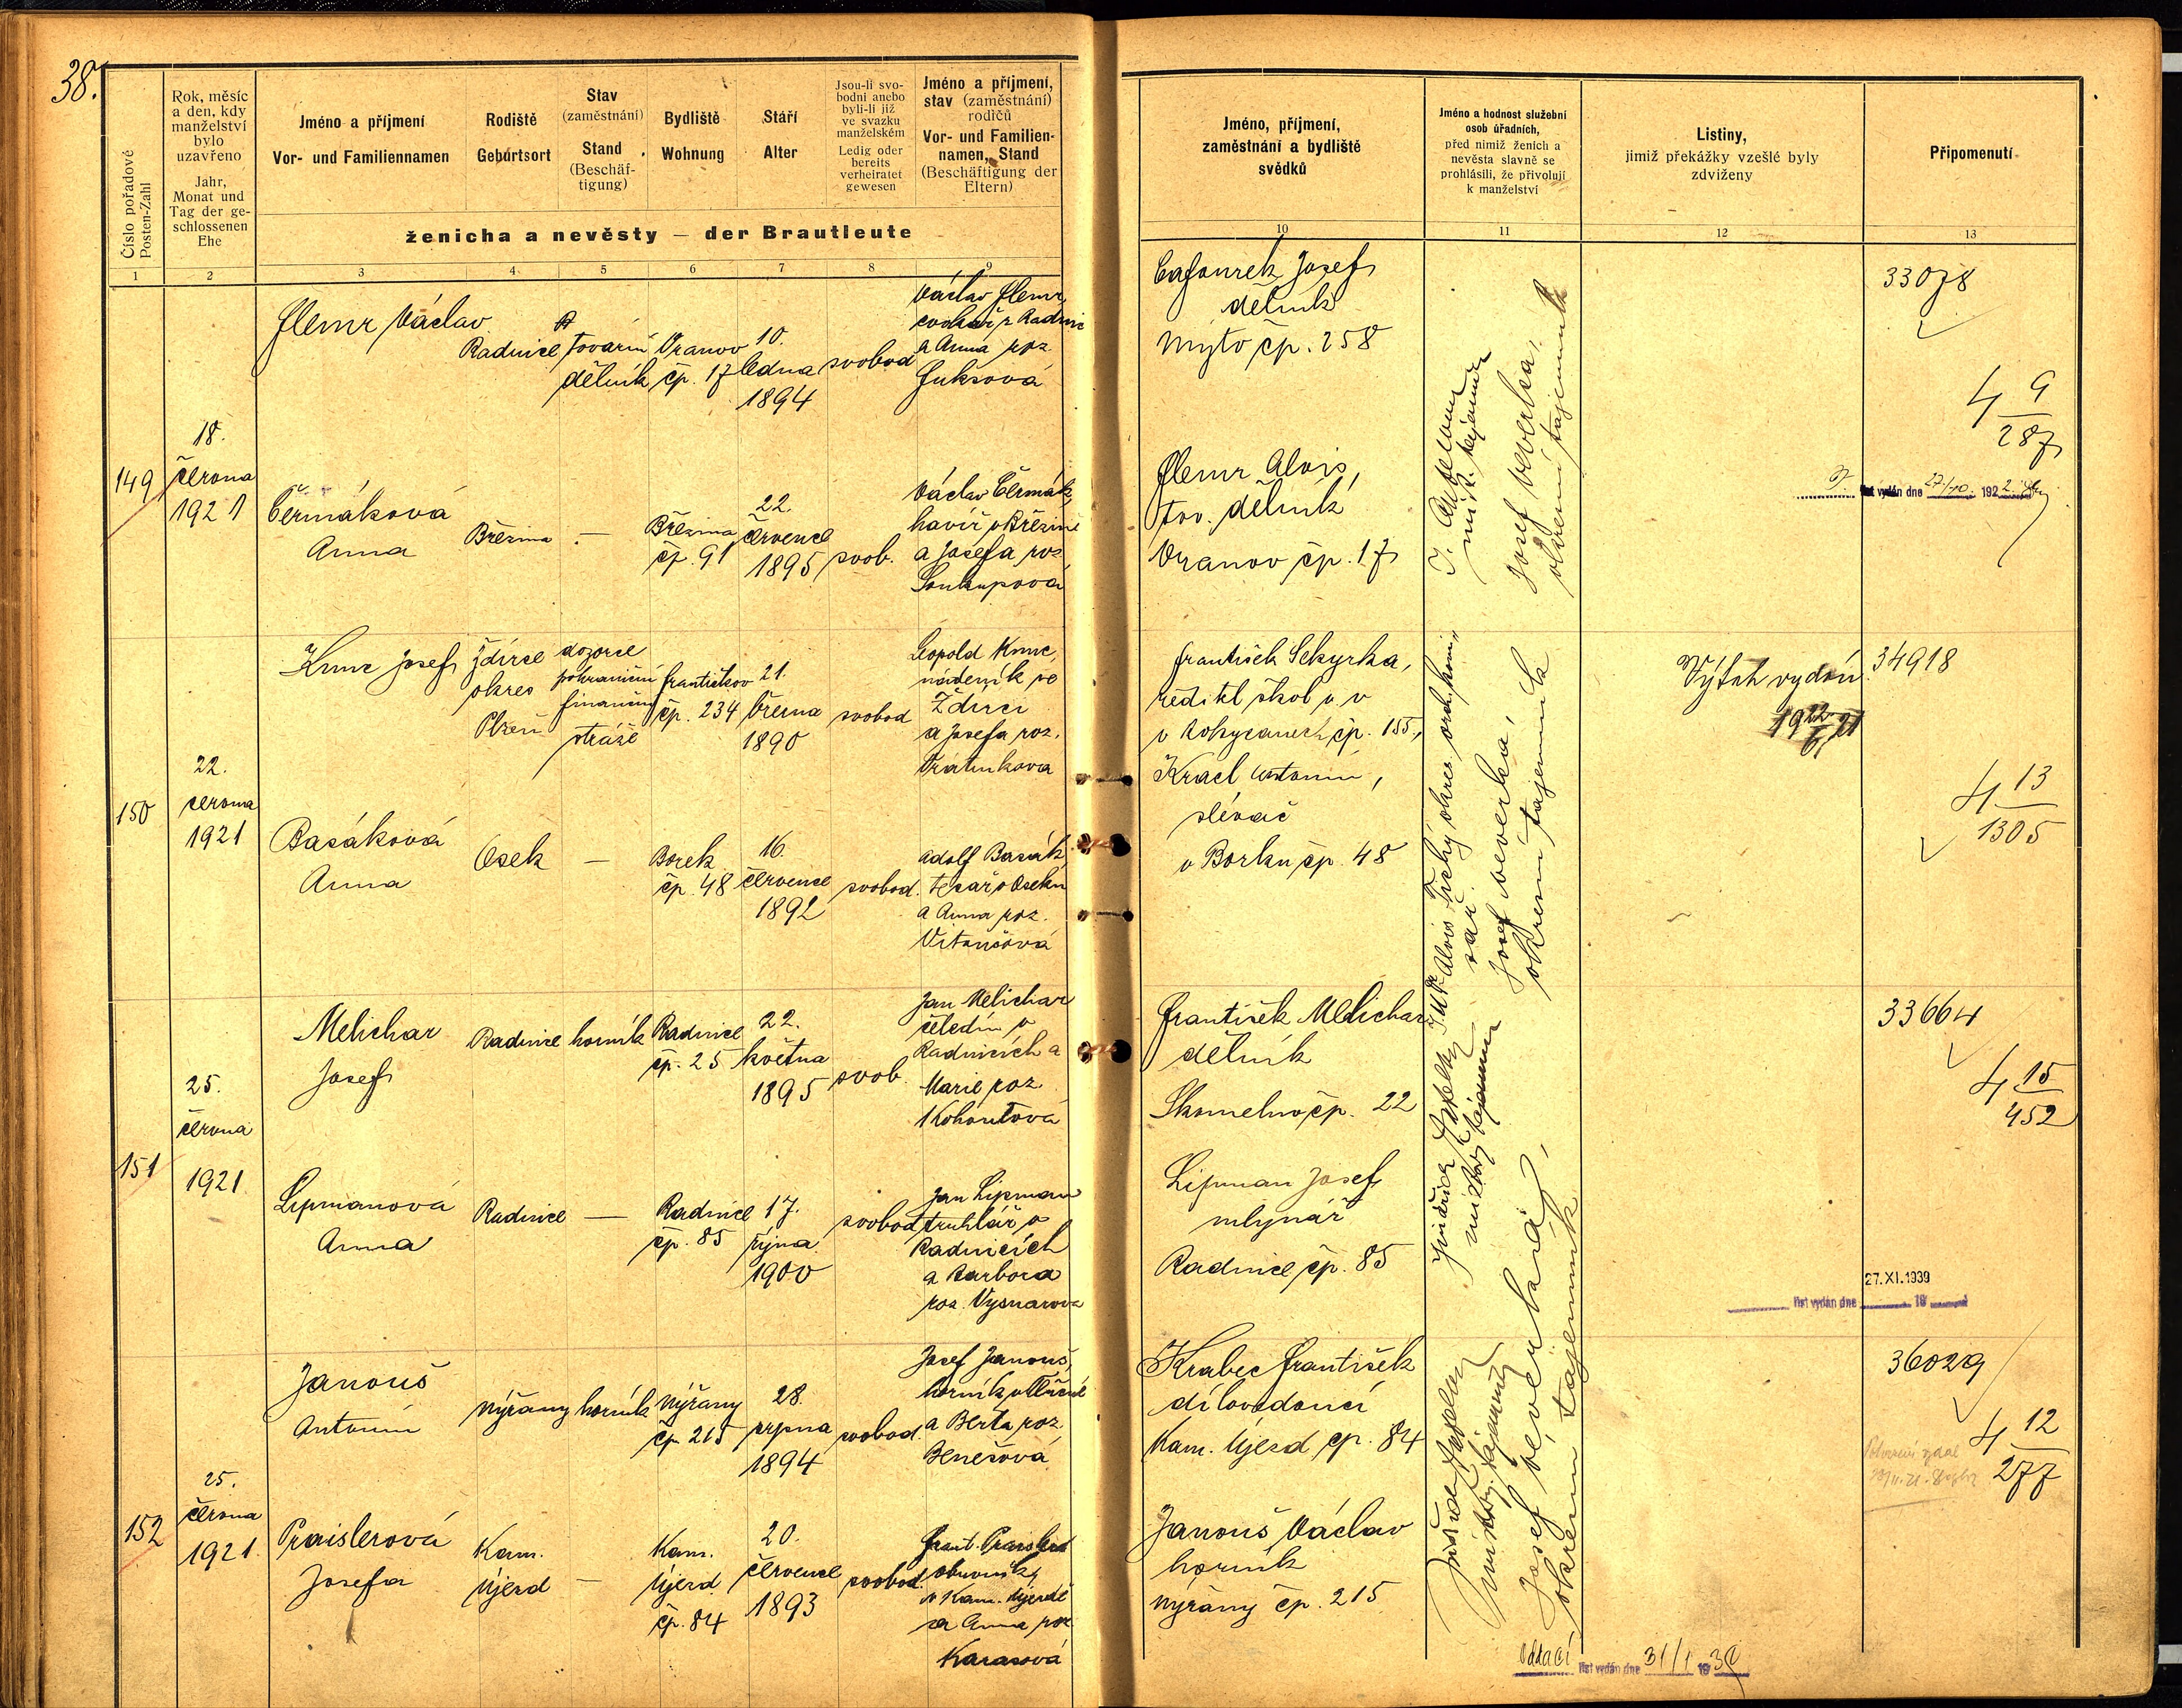 38.
Číslo pořadové
Posten-Zahl
Rok, měsíc
a den, kdy
manželství
bylo
uzavřeno
Jahr,
Monat und
Tag der ge-
schlossenen
Ehe
Jméno a příjmení
Vor- und Familiennamen
Rodiště
Geburtsort
Stav
(zaměstnání)
Stand
(Beschäf-
tigung)
Bydliště
Wohnung
Stáří
Alter
Jsou-li svo-
bodni anebo
byli-li již
ve svazku
manželském
Ledig oder
bereits
verheiratet
gewesen
Jméno a příjmení,
stav (zaměstnání)
rodičů
Vor- und Familien-
namen, Stand
(Beschäftigung der
Eltern)
ženicha a nevěsty — der Brautleute
1 2 3 4 5 6 7 8 9
149
18.
června
1921
Flemr Václav
Radnice
tovární
dělník
Vranov
čp. 17
10.
ledna
1894
svobod
Václav Flemr,
cvokař z Radnic
a Anna roz.
Fuksová
Čermáková
Anna
Březina
—
Březina
čp. 91
22.
července
1895
svob.
Václav Čermák,
havíř v Březině
a Josefa roz
Soukupová
150
22.
června
1921
Kunc Josef
Ždírec
okres
Plzeň
dozorce
pohraniční
finanční
stráže
Františkov
čp. 234
21.
března
1890
svobod
Leopold Kunc,
nádeník ve
Ždírci
a Josefa roz.
Vrátníková
Basáková
Anna
Osek
—
Borek
čp. 48
16.
července
1892
svobod.
Adolf Basák
tesař v Oseku
a Anna roz.
Vitoušová
151
25.
června
1921
Melichar
Josef
Radnice
horník
Radnice
čp. 25
22.
května
1895
svob.
Jan Melichar
čeledín v
Radnicích a
Marie roz.
Kohoutová
Lipmanová
Anna
Radnice
—
Radnice
čp. 85
17.
října
1900
svobod
Jan Lipman
truhlář v
Radnicích
a Barbora
roz.
152
25.
června
1921.
Janouš
Antonín
Nýřany
horník
Nýřany
čp. 215
28.
srpna
1894
svobod.
Josef Janouš,
horník v Tlučné
a Berta roz.
Benešová
Praislerová
Josefa
Kam.
Újezd
—
Kam.
Újezd
čp. 84
20.
července
1893
svobod.
Frant. Praisler
obuvník
v Kam. Újezdě
a Anna roz
Karasová
Jméno, příjmení,
zaměstnání a bydliště
svědků
Jméno a hodnost služební
osob úřadních,
před nimiž ženich a
nevěsta slavně se
prohlásili, že přivolují
k manželství
Listiny,
jimiž překážky vzešlé byly
zdviženy
Připomenutí
10 11 12 13
Cafourek Josef
dělník
Mýto čp. 258
Flemr Alois,
tov. dělník
Vranov čp. 17
Josef Veverka,
okresní tajemník
33078
4 9
287
list vydán dne 27/10. 1922.
František Sekyrka,
ředitel škol v. v
v Rokycanech čp. 155.,
Kracl Antonín,
slévač
v Borku čp. 48
JUDr Alois Tichý okres. vrch. komi
sař.
Josef Veverka,
okresní tajemník
Výtah vydán
34918
4 13
1305
František Melichar
dělník
Skomelno čp. 22
Lipman Josef
mlynář
Radnice čp. 85
33664
4 15
452
27. XI. 1939
list vydán dne 19
Krabec František
důlovdoucí
Kam. Újezd čp. 84
Janouš Václav
horník
Nýřany čp. 215
Josef Veverka,
okresní tajemník
36029
4 12
277
Oddací list vydán dne 31/1 1939